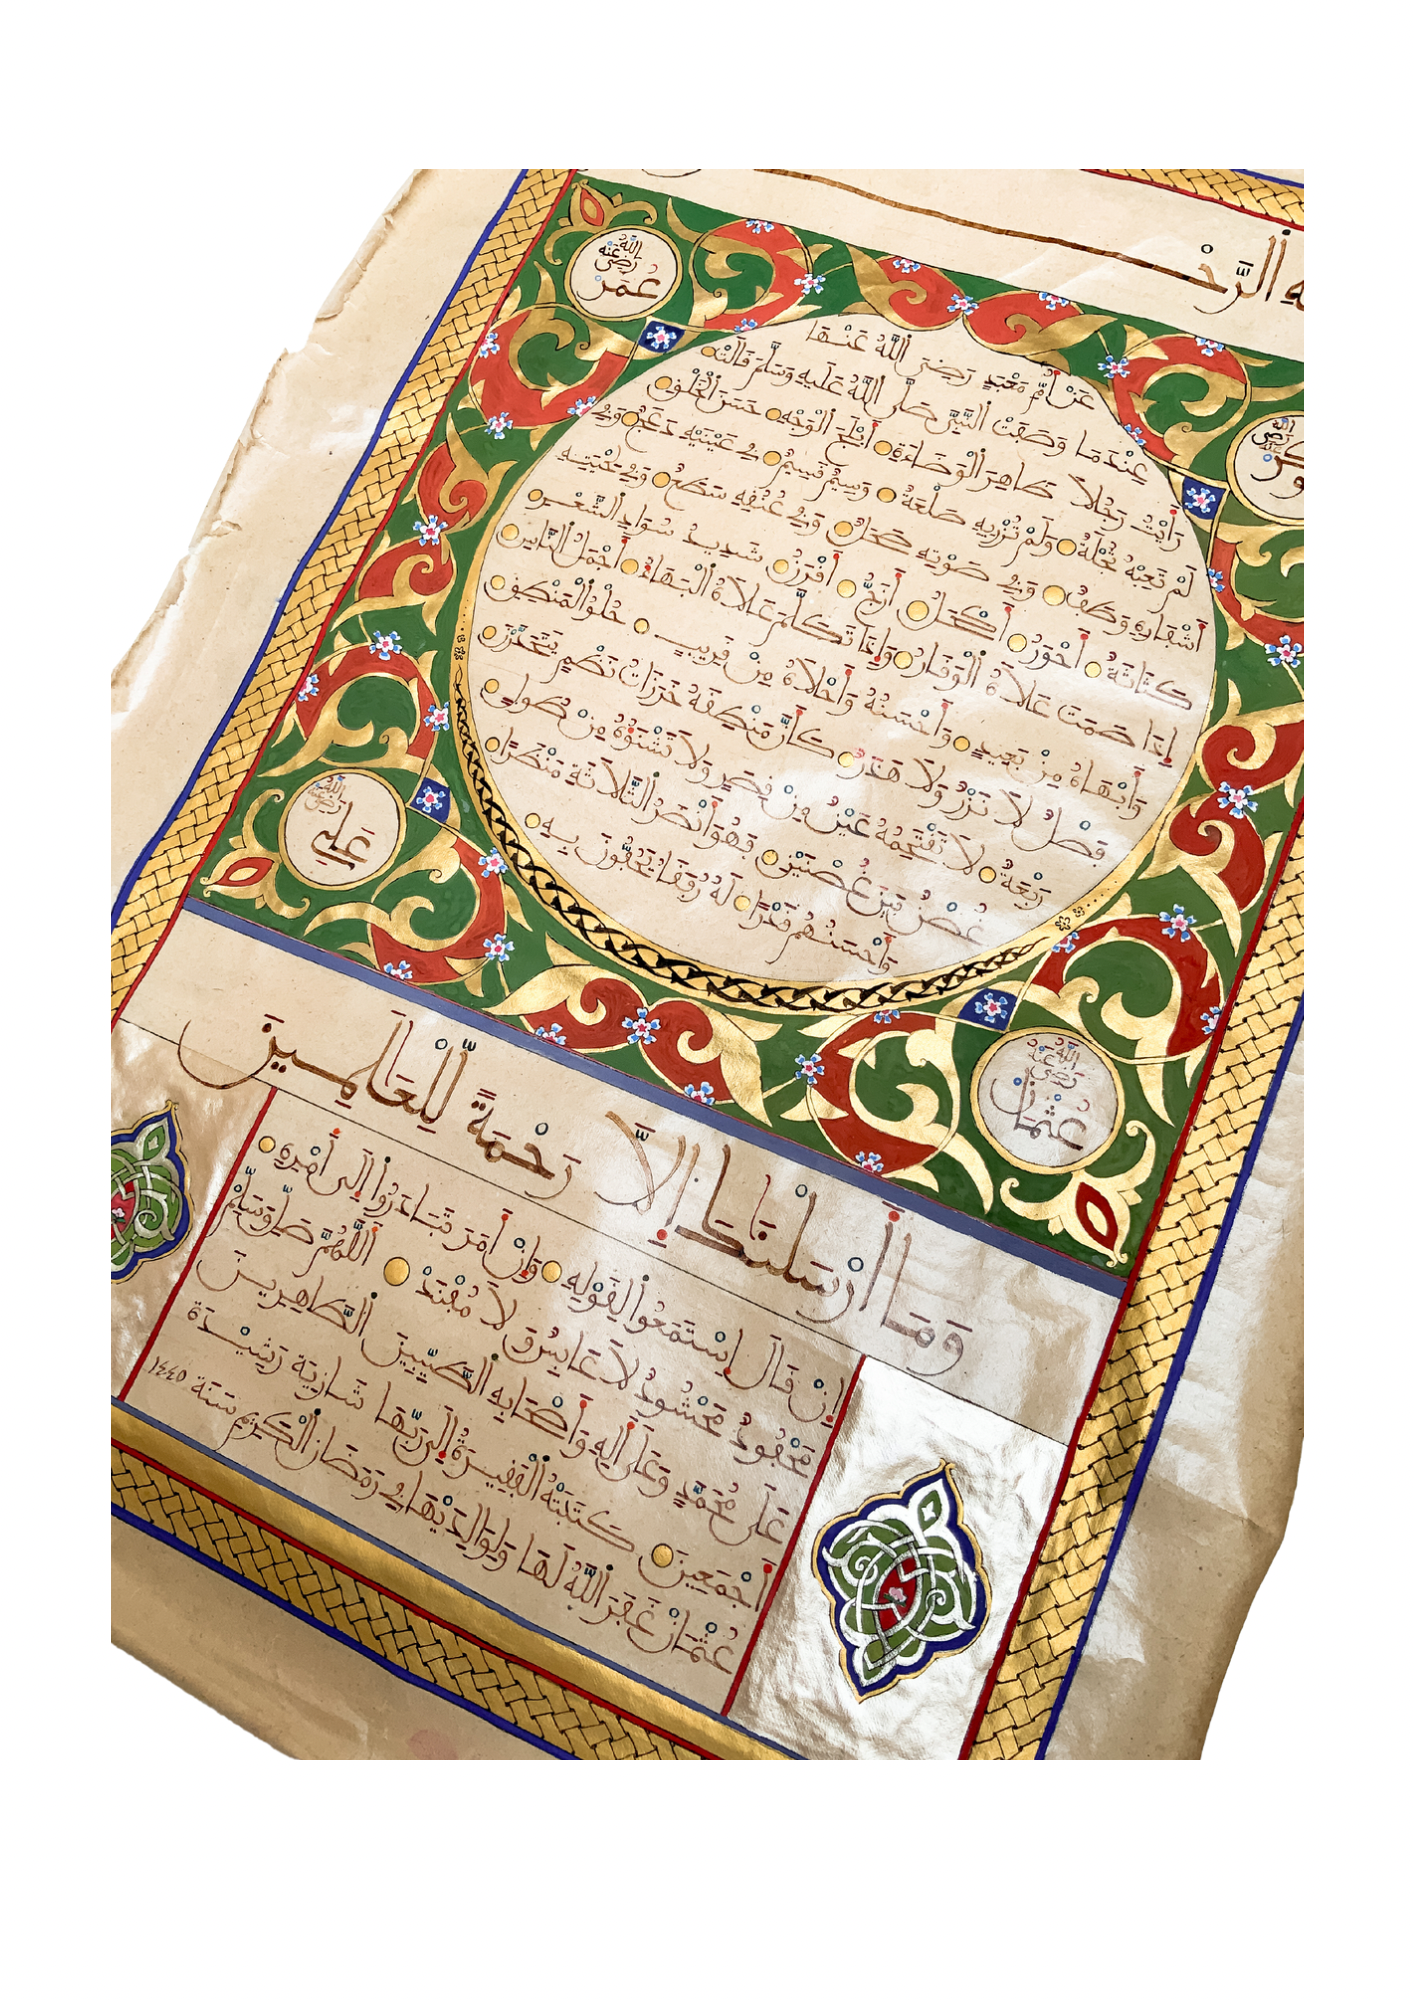 ـه الرَّحْـ
عُمَر رَضِيَ اللَّهُ عَنْهُ
عَنْ أُمِّ مَعْبَدٍ رَضِيَ اللَّهُ عَنْهَا
عِنْدَمَا وَصَفَتْ النَّبِيَّ صَلَّى اللَّهُ عَلَيْهِ وَسَلَّمَ قَالَتْ
رَأَيْتُ رَجُلًا ظَاهِرَ الْوَضَاءَةِ أَبْلَجَ الْوَجْهِ حَسَنَ الْخَلْقِ
لَمْ تَعِبْهُ ثُجْلَةٌ وَلَمْ تُزْرِيهِ صَلْعَةٌ وَسِيمٌ قَسِيمٌ فِي عَيْنَيْهِ دَعَجٌ وَفِي
أَشْفَارِهِ وَطَفٌ وَفِي صَوْتِهِ صَحَلٌ وَفِي عُنُقِهِ سَطَعٌ وَفِي لِحْيَتِهِ
كَثَاثَةٌ أَحْوَرُ أَكْحَلُ أَزَجُّ أَقْرَنُ شَدِيدُ سَوَادِ الشَّعْرِ
إِذَا صَمَتَ عَلَاهُ الْوَقَارُ وَإِذَا تَكَلَّمَ عَلَاهُ الْبَهَاءُ أَجْمَلُ النَّاسِ
وَأَبْهَاهُ مِنْ بَعِيدٍ وَأَحْسَنُهُ وَأَحْلَاهُ مِنْ قَرِيبٍ حُلْوُ الْمَنْطِقِ
فَصْلٌ لَا نَزْرٌ وَلَا هَذَرٌ كَأَنَّ مَنْطِقَهُ خَرَزَاتُ نَظْمٍ يَتَحَدَّرْنَ
رَبْعَةٌ لَا تَقْتَحِمُهُ عَيْنٌ مِنْ قِصَرٍ وَلَا تَشْنَؤُهُ مِنْ طُولٍ
غُصْنٌ بَيْنَ غُصْنَيْنِ فَهُوَ أَنْضَرُ الثَّلَاثَةِ مَنْظَرًا
وَأَحْسَنُهُمْ قَدْرًا لَهُ رُفَقَاءُ يَحُفُّونَ بِهِ
عَلِي رَضِيَ اللَّهُ عَنْهُ
عُثْمَان رَضِيَ اللَّهُ عَنْهُ
وَمَا أَرْسَلْنَاكَ إِلَّا رَحْمَةً لِّلْعَالَمِينَ
إِنْ قَالَ اِسْتَمَعُوا لِقَوْلِهِ وَإِنْ أَمَرَ تَبَادَرُوا إِلَى أَمْرِهِ
مَحْفُودٌ مَحْشُودٌ لَا عَابِسٌ وَلَا مُفْنِدٌ اللَّهُمَّ صَلِّ وَسَلِّمْ
عَلَى مُحَمَّدٍ وَعَلَى آلِهِ وَأَصْحَابِهِ الطَّيِّبِينَ الطَّاهِرِينَ
أَجْمَعِينَ كَتَبَتْهُ الْفَقِيرَةُ إِلَى رَبِّهَا شَازِيَة رَشِيْدَة
عُثْمَان غَفَرَ اللَّهُ لَهَا وَلِوَالِدَيْهَا فِي رَمَضَانَ الْكَرِيمِ سَنَةَ ١٤٤٥